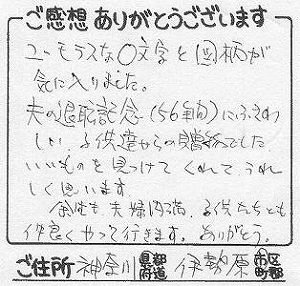 ご感想ありがとうございます
ユーモラスな〇文字と図柄が
気に入りました。
夫の退職記念(56年間)にふさわ
しい、子供達からの贈物でした
いいものを見つけてくれて、うれ
しく思います。
夫婦円満、子供たちとも
仲良くやって行きます。ありがとう。
ご住所 神奈川 都道府県 伊勢原 市区町郡